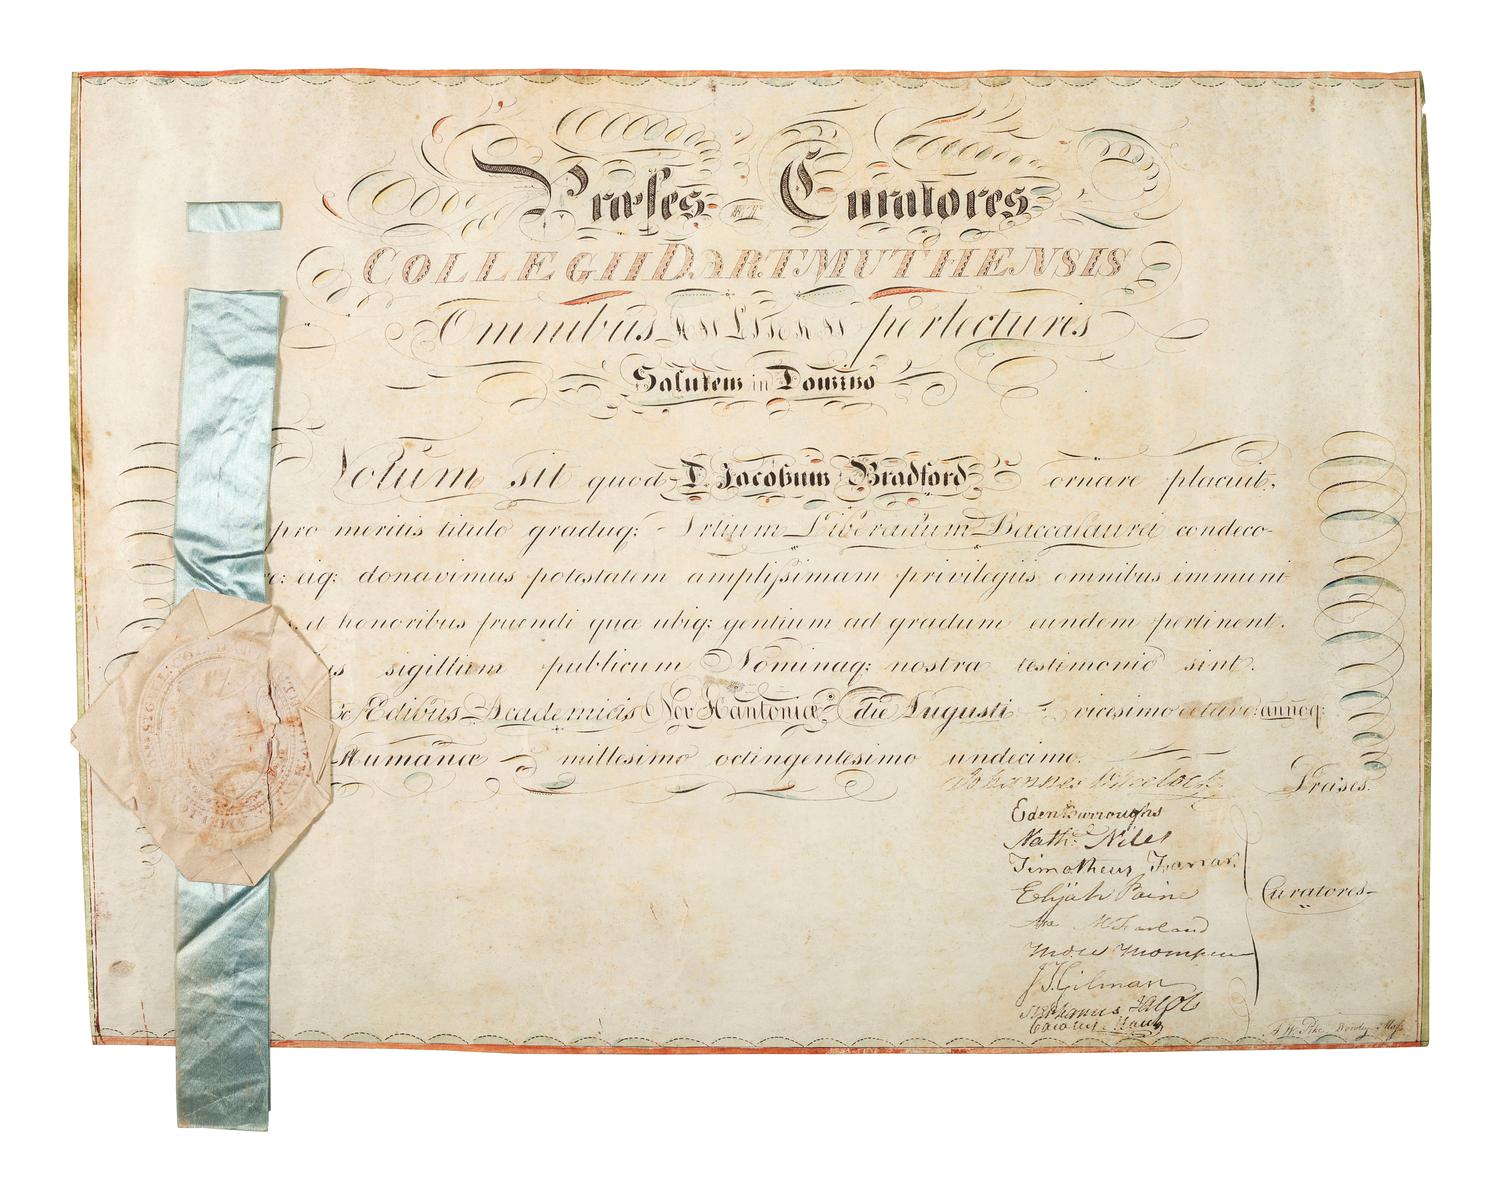 Præses ET Curatores
COLLEGII DARTMUTHENSIS
Omnibus perlecturis
Salutem in Domino
Notum sit quod D. Jacobum Bradford ornare placuit,
pro meritis titulo graduq: Artium Liberalium Baccalaurei condeco-
eiq: donavimus potestatem amplissimam privilegiis omnibus immuni
et honoribus fruendi quæ ubiq: gentium ad gradum eundem pertinent.
sigillum publicum Nominaq: nostra testimonio sint.
Ædibus Academicis Nov Hantoniæ die Augusti vicesimo octavo: annoq:
Humanæ millesimo octingentesimo undecimo.
Johannes Wheelock Præses.
Eden Burroughs
Nath: Niles
Timotheus Farrar
Elijah Paine
Curatores
McFarland
Thompson
J T Gilman
Stephanus Jacob